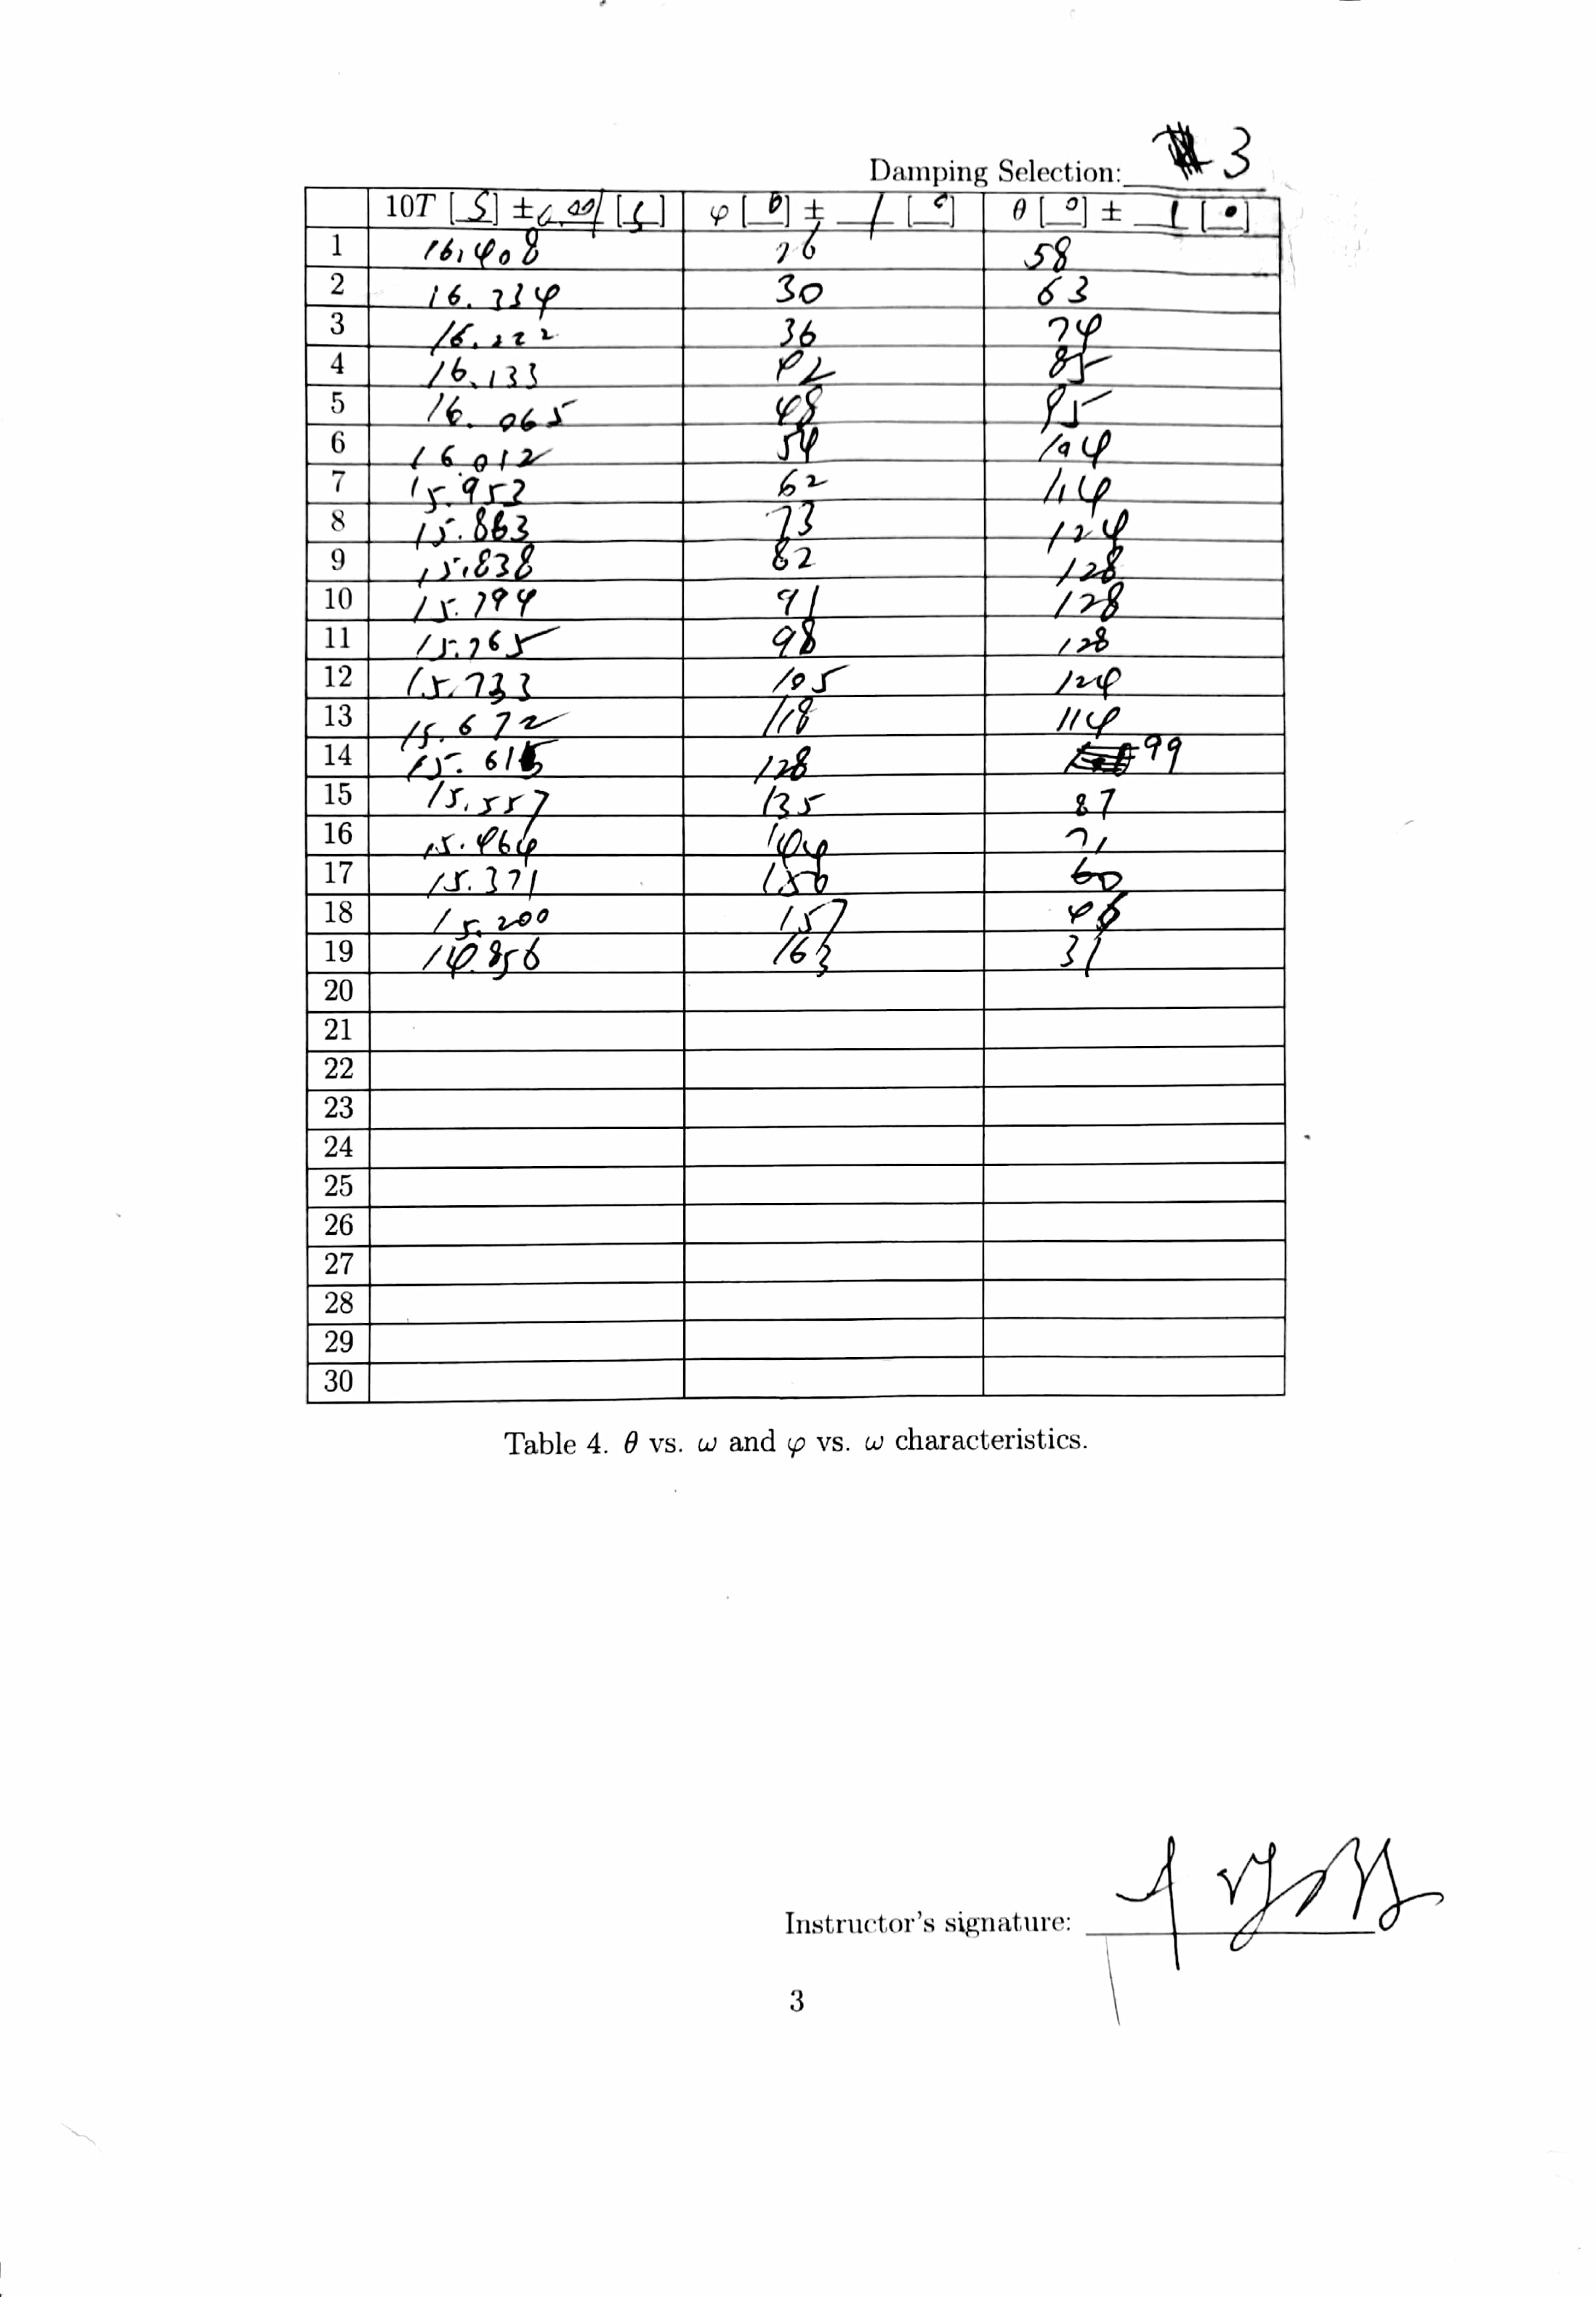 Damping Selection: 3
10T [S] ± 0.001 [s] φ [°] ± 1 [°] θ [°] ± 1 [°]
1 16.408 26 58
2 16.334 30 63
3 16.222 36 74
4 16.133 42 85
5 16.065 48 95
6 16.012 54 104
7 15.952 62 114
8 15.863 73 124
9 15.838 82 128
10 15.794 91 128
11 15.765 98 128
12 15.733 105 124
13 15.672 118 114
14 15.615 128 99
15 15.557 135 87
16 15.464 144 71
17 15.371 150 60
18 15.200 157 46
19 14.856 163 31
20
21
22
23
24
25
26
27
28
29
30
Table 4. θ vs. ω and φ vs. ω characteristics.
Instructor's signature:
3